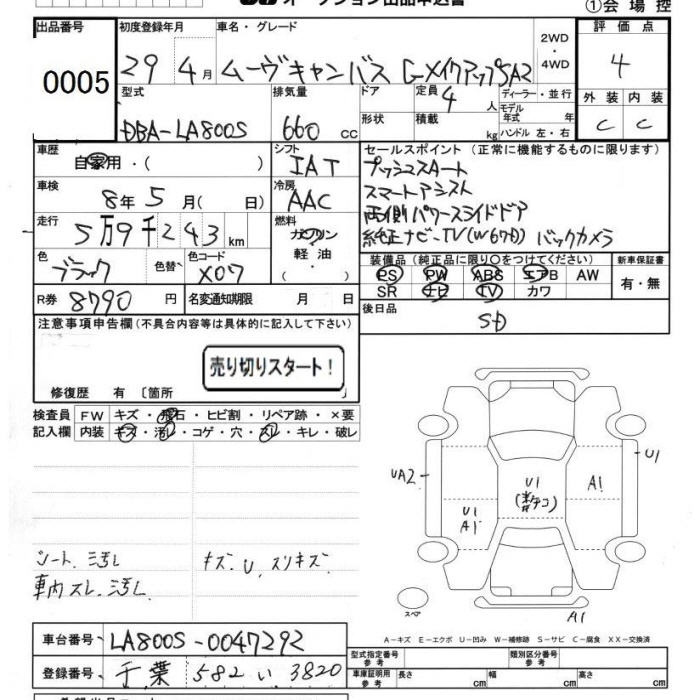 オークション出品申込書
①会場控
出品番号
0005
初度登録年月
29 4月
車名・グレード
ムーヴキャンバス GメイクアップSA2
2WD
4WD
評価点
4
外装 内装
C C
型式
DBA-LA800S
排気量
660 cc
ドア
形状
定員 4 人
積載 kg
ディーラー・並行
モデル年式 年
ハンドル 左・右
車歴
自家用・( )
シフト
IAT
車検
8年 5月( 日)
冷房
AAC
走行
5万9千243km
燃料
ガソリン
軽油
( ・ )
色
ブラック
色替
色コード
X07
R券 8790円
名変通知期限 月 日
セールスポイント(正常に機能するものに限ります)
プッシュスタート
スマートアシスト
両側パワースライドドア
純正ナビ-TV(W67D) バックカメラ
装備品(純正品に限り○をつけてください)
PS PW ABS エアB AW
SR ナビ TV カワ
新車保証書
有・無
後日品
SD
注意事項申告欄(不具合内容等は具体的に記入して下さい)
売り切りスタート!
修復歴 有〔箇所 〕
検査員記入欄
FW キズ・飛石・ヒビ割・リペア跡・×要
内装 キズ・汚レ・コゲ・穴・スレ・キレ・破レ
シート汚レ
車内スレ汚レ
キズ・U スリキズ
UA2
U1
A1
U1
A1
U1
A1
スペア
A−キズ E−エクボ U−凹み W−補修跡 S−サビ C−腐食 XX−交換済
車台番号 LA800S-0047292
登録番号 千葉 582 い 3820
型式指定番号
参考
類別区分番号
参考
車両証明用
参考
長さ cm
幅 cm
高さ cm